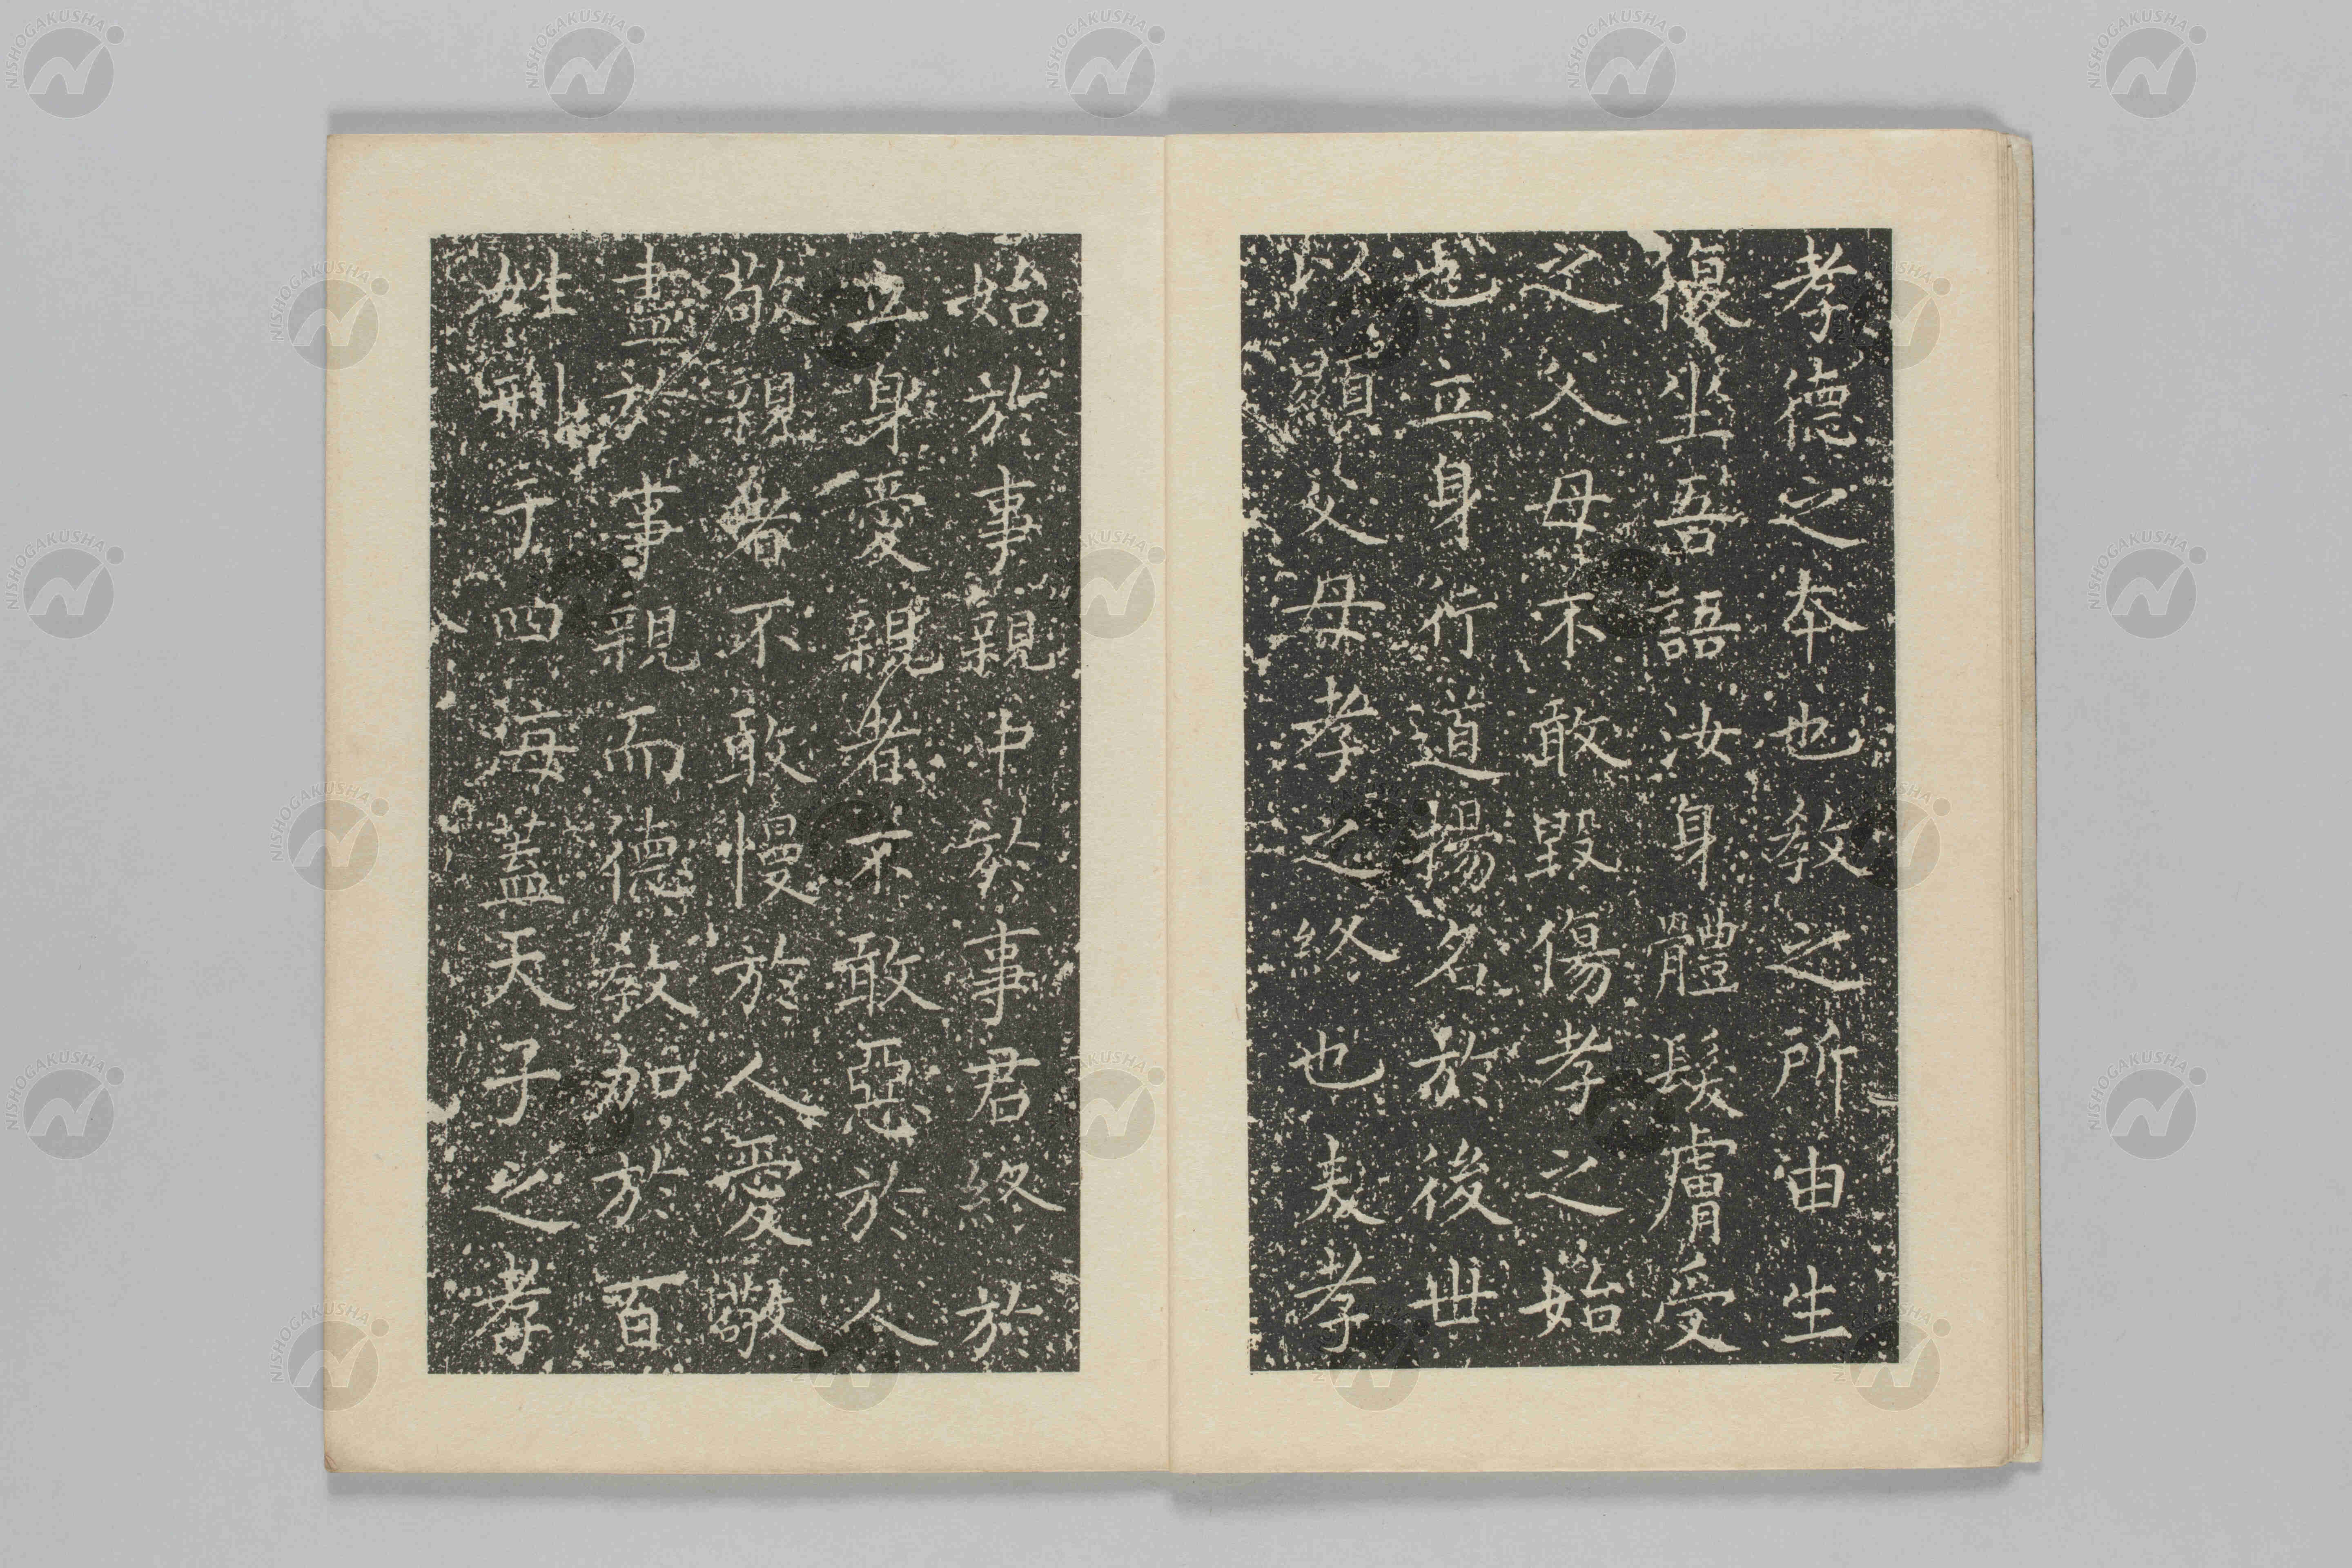 孝德之本也教之所由生
復坐吾語汝身體髮膚受
之父母不敢毀傷孝之始
也立身行道揚名於後世
以顯父母孝之終也夫孝
始於事親中於事君終於
立身愛親者不敢惡於人
敬親者不敢慢於人愛敬
盡於事親而德教加於百
姓刑于四海蓋天子之孝
NISHOGAKUSHA